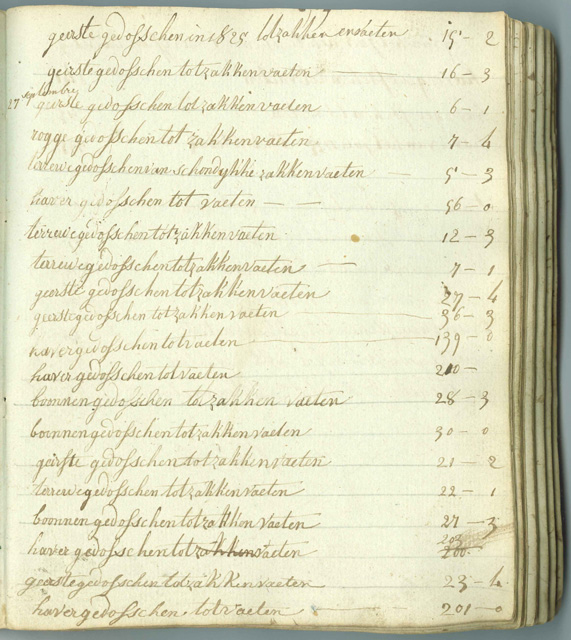 geerste gedosschen in 1825 tot zakken en vaeten 15 - 2
geirste gedosschen tot zakken vaeten 16 - 3
27 septembry
geerste gedosschen tot zakken vaeten 6 - 1
rogge gedosschen tot zakken vaeten 7 - 4
terrewe gedosschen van schondykke zakken vaeten 5 - 3
haver gedosschen tot vaeten 56 - 0
terrewe gedosschen tot zakken vaeten 12 - 3
terrewe gedosschen tot zakken vaeten 7 - 1
geerste gedosschen tot zakken vaeten 27 - 4
geerste gedosschen tot zakken vaeten 36 - 3
haver gedosschen tot vaeten 139 - 0
haver gedosschen tot vaeten 210 -
boonnen gedosschen tot zakken vaeten 28 - 3
boonnen gedosschen tot zakken vaeten 30 - 0
geirste gedosschen tot zakken vaeten 21 - 2
terrewe gedosschen tot zakken vaeten 22 - 1
boonnen gedosschen tot zakken vaeten 27 - 3
203
haver gedosschen tot zakken vaeten 200
geerste gedosschen tot zakken vaeten 23 - 4
haver gedosschen tot vaeten 201 - 0